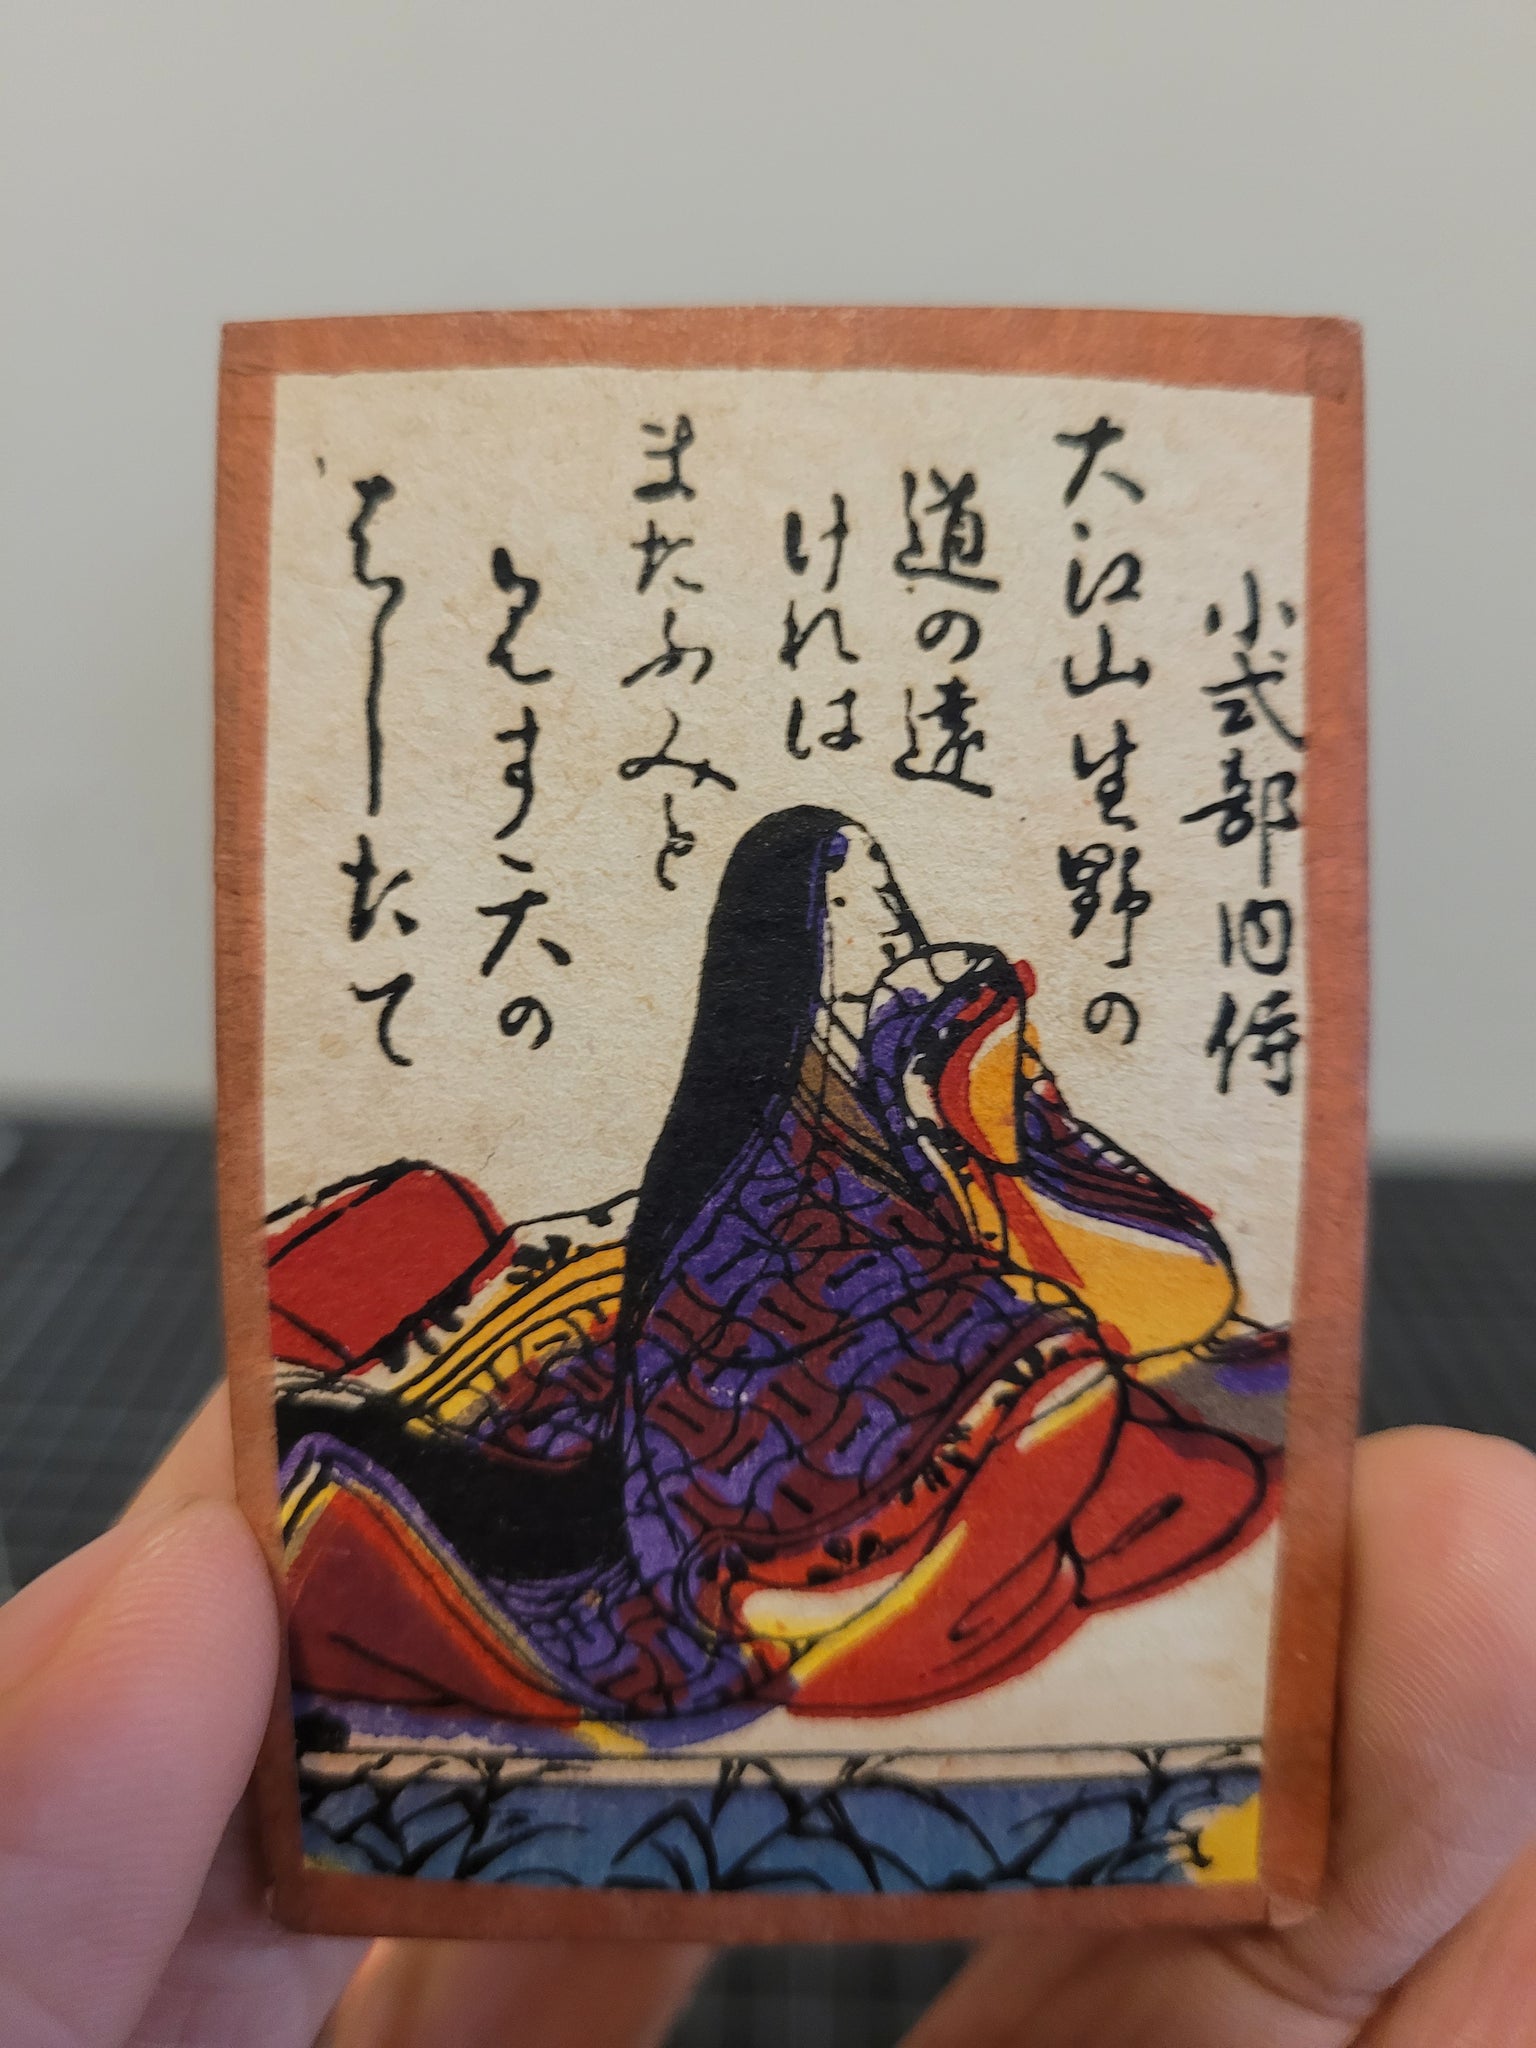 小式部内侍
大江山生野の
道の遠
けれは
またふみと
見す天の
はしたて